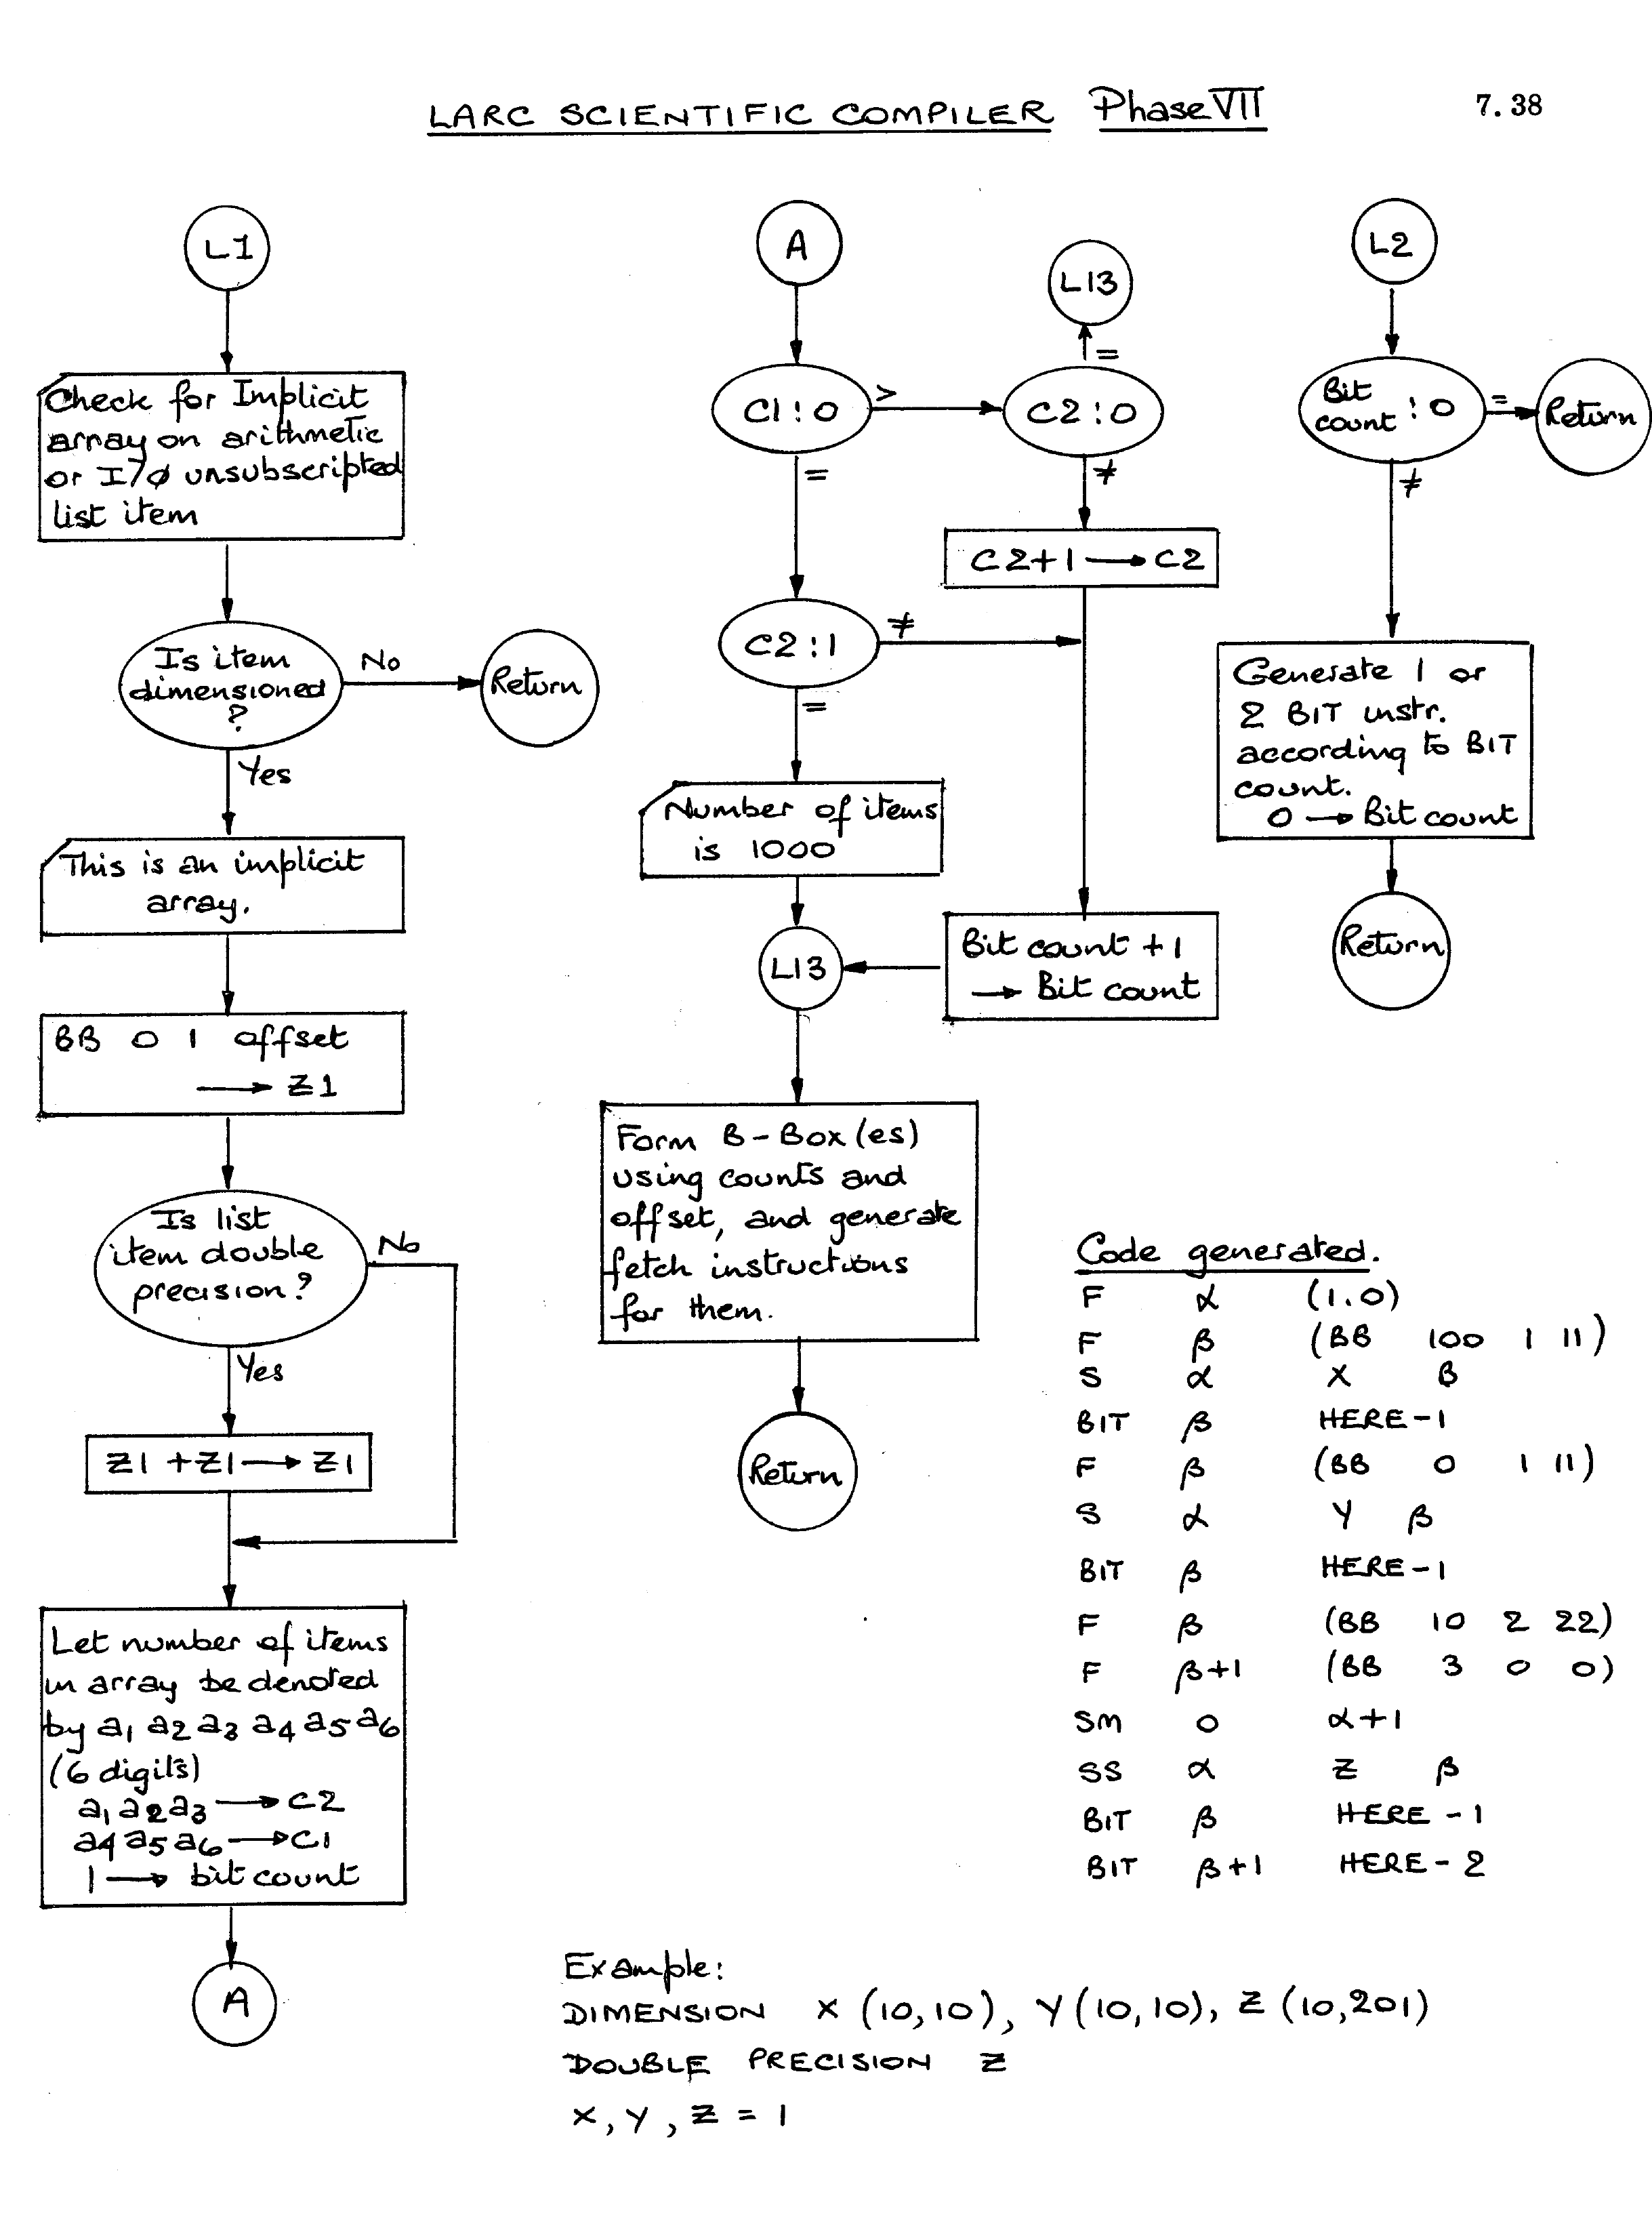 LARC SCIENTIFIC COMPILER Phase VII 7.38
L1
Check for Implicit
array on arithmetic
or I/Ø unsubscripted
list item
Is item
dimensioned
?
No
Return
Yes
This is an implicit
array.
BB 0 1 offset
→ Z1
Is list
item double
precision?
No
Yes
Z1 + Z1 → Z1
Let number of items
in array be denoted
by a1 a2 a3 a4 a5 a6
(6 digits)
a1 a2 a3 → C2
a4 a5 a6 → C1
1 → bit count
A
A
C1 : 0
>
C2 : 0
=
L13
≠
C2+1 → C2
=
C2 : 1
≠
=
Number of items
is 1000
L13
Bit count + 1
→ Bit count
Form B-Box(es)
using counts and
offset, and generate
fetch instructions
for them.
Return
L2
Bit
count : 0
=
Return
≠
Generate 1 or
2 BIT instr.
according to BIT
count.
0 → Bit count
Return
Code generated.
F α (1.0)
F β (BB 100 1 11)
S α X β
BIT β HERE-1
F β (BB 0 1 11)
S α Y β
BIT β HERE-1
F β (BB 10 2 22)
F β+1 (BB 3 0 0)
SM 0 α+1
SS α Z β
BIT β HERE-1
BIT β+1 HERE-2
Example:
DIMENSION X (10,10), Y (10,10), Z (10,201)
DOUBLE PRECISION Z
X, Y, Z = 1